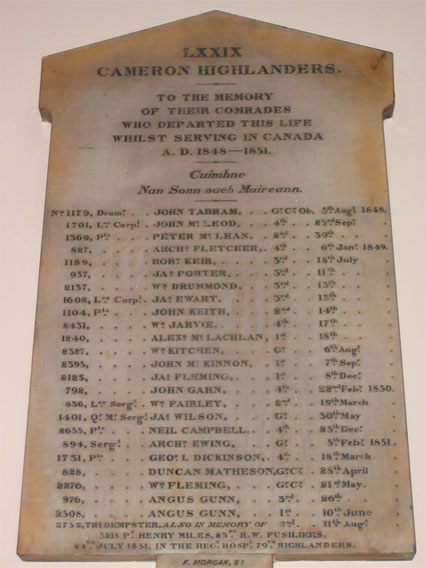 LXXIX
CAMERON HIGHLANDERS.
TO THE MEMORY
OF THEIR COMRADES
WHO DEPARTED THIS LIFE
WHILST SERVING IN CANADA
A. D. 1848—1851.
Cuimhne
Nan Sonn nach Maireann.
No. 1179, Drumr. . . JOHN TABRAM, . . Gr. Cy. Ob. 5th Augt. 1848.
1701, Lce. Corpl. . JOHN Mc. LEOD, . . 4th . . 23rd Sepr.
1369, Pte. . . PETER Mc. LEAN, . . 2nd . . 30th
887, . . . ARCHd. FLETCHER, . . 4th . . 6th Jany. 1849.
1189, . . . ROBt. KEIR, . . 3rd . . 18th July
937, . . . JAs. PORTER, . . 3rd . . 11th
2157, . . . Wm. DRUMMOND, . . 3rd . . 13th
1608, Lce. Corpl. . JAs. EWART, . . 3rd . . 13th
1104, Pte. . . JOHN KEITH, . . 2nd . . 14th
2431, . . . Wm. JARVIE, . . 4th . . 17th
1840, . . . ALEXr. Mc. LACHLAN, . 1st . . 18th
2387, . . . Wm. KITCHEN, . . Gr. . . 6th Augt.
2395, . . . JOHN Mc. KINNON, . . 1st . . 7th Sepr.
2123, . . . JAs. FLEMING, . . 1st . . 8th Decr.
798, . . . JOHN GARN, . . 4th . . 22nd Feby. 1850.
836, Lce. Sergt. . Wm. FAIRLEY, . . 2nd . . 19th March
1401, Qr. Mr. Sergt. JAs. WILSON, . . Gr. . . 30th May
2655, Pte. . . NEIL CAMPBELL, . . 4th . . 25th Decr.
894, Sergt. . . ARCHd. EWING, . . Gr. . . 5th Feby. 1851.
1751, Pte. . . GEOe. L DICKINSON, . . 4th . . 18th March
828, . . . DUNCAN MATHESON, Gr. Cy. . . 28th April
2276, . . . Wm. FLEMING, . . Gr. Cy. . . 21st May.
976, . . . ANGUS GUNN, . . 3rd. . . 26th
2508, . . . ANGUS GUNN, . . 1st . . 10th June
2752, THs. DEMPSTER, ALSO IN MEMORY OF 2nd . . 11th Augt.
3215 Pte. HENRY MILES, 23RD. R.W. FUSILIERS,
24TH JULY 1851, IN THE REGt. HOSPl. 79TH HIGHLANDERS.
F. MORGAN,